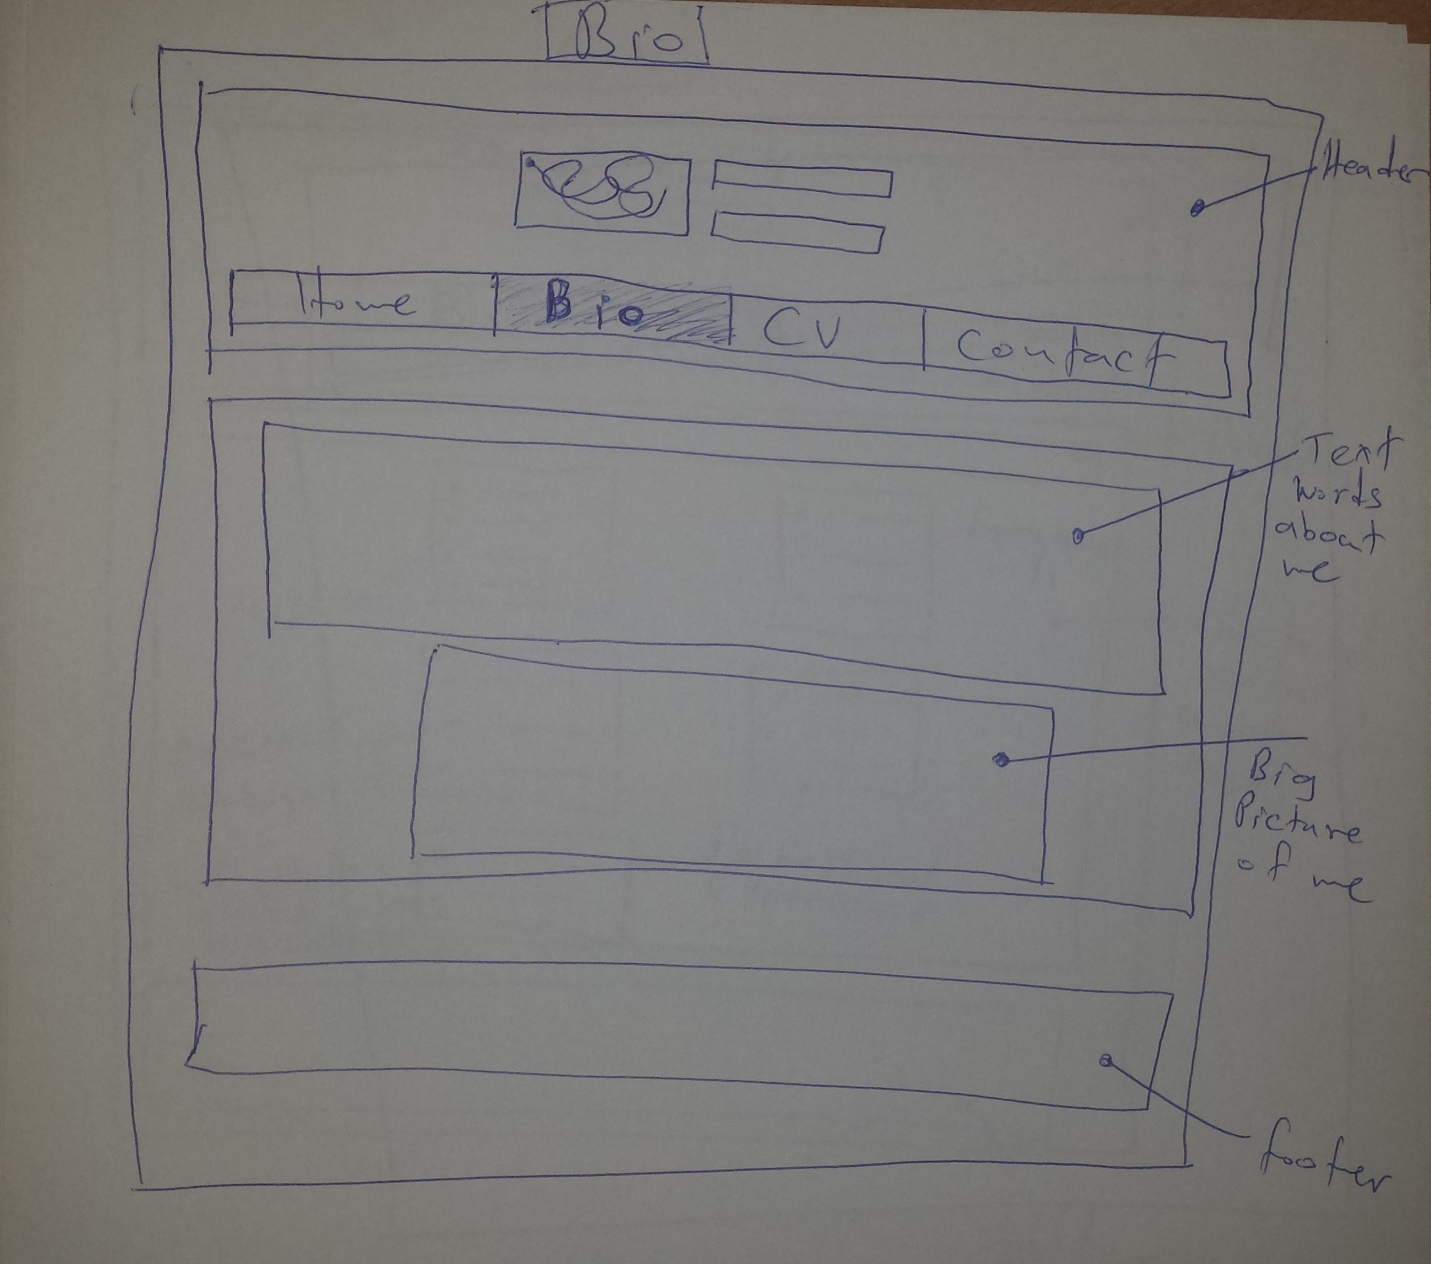 Bio
Header
Home Bio CV Contact
Text
words
about
me
Big
Picture
of me
footer